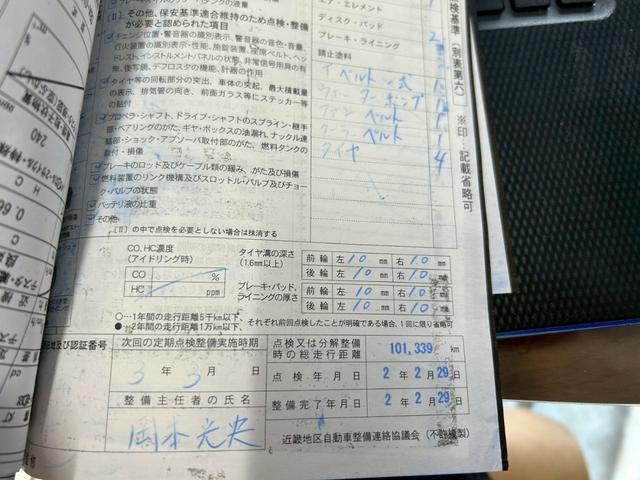 エア・エレメント
ディスク・パッド
ブレーキ・ライニング 2
錆止塗料
ウォーターポンプ 1
ファンベルト 1
クーラーベルト 1
タイヤ 4
検基準(別表第六)
※印…記載省略可
[Ⅱ]その他、保安基準適合維持のため点検・整備
が必要と認められた項目
チェンジ位置・警音器の識別表示、警音器の音色・音量、
灯火装置の識別表示・性能、施錠装置、座席ベルト、ヘッ
ドレスト、インストルメントパネルの状態、非常信号用具の有
無、後写鏡、デフロスタの機能、計器の作用
タイヤ等の回転部分の突出、車体の突起、最大積載量
の表示、排気管の向き、前面ガラス等にステッカー等
の貼付
プロペラ・シャフト、ドライブ・シャフトのスプライン・継手
部・ベアリングのがた、ギヤ・ボックスの油漏れ、ナックル連
結部・ショック・アブソーバ取付部のがた、燃料タンクの
取付・損傷
ブレーキのロッド及びケーブル類の緩み、がた及び損傷
燃料装置のリンク機構及びスロットル・バルブ及びチョー
ク・バルブの状態
バッテリ液の比重
その他
[Ⅱ]の中で点検を必要としない場合は抹消する
CO、HC濃度
(アイドリング時)
CO %
HC ppm
タイヤ溝の深さ
(1.6mm以上)
前輪 左10 mm 右10 mm
後輪 左10 mm 右10 mm
ブレーキ・パッド、
ライニングの厚さ
前輪 左10 mm 右10 mm
後輪 左10 mm 右10 mm
○…1年間の走行距離5千km以下、
●…2年間の走行距離1万km以下、それぞれ前回点検したことが明確である場合、1回に限り省略可
及び認証番号
次回の定期点検整備実施時期
3年 3月 日
整備主任者の氏名
岡本光央
点検又は分解整備
時の総走行距離 101,339 km
点検年月日 2年2月29日
整備完了年月日 2年2月29日
近畿地区自動車整備連絡協議会(不許複製)
240